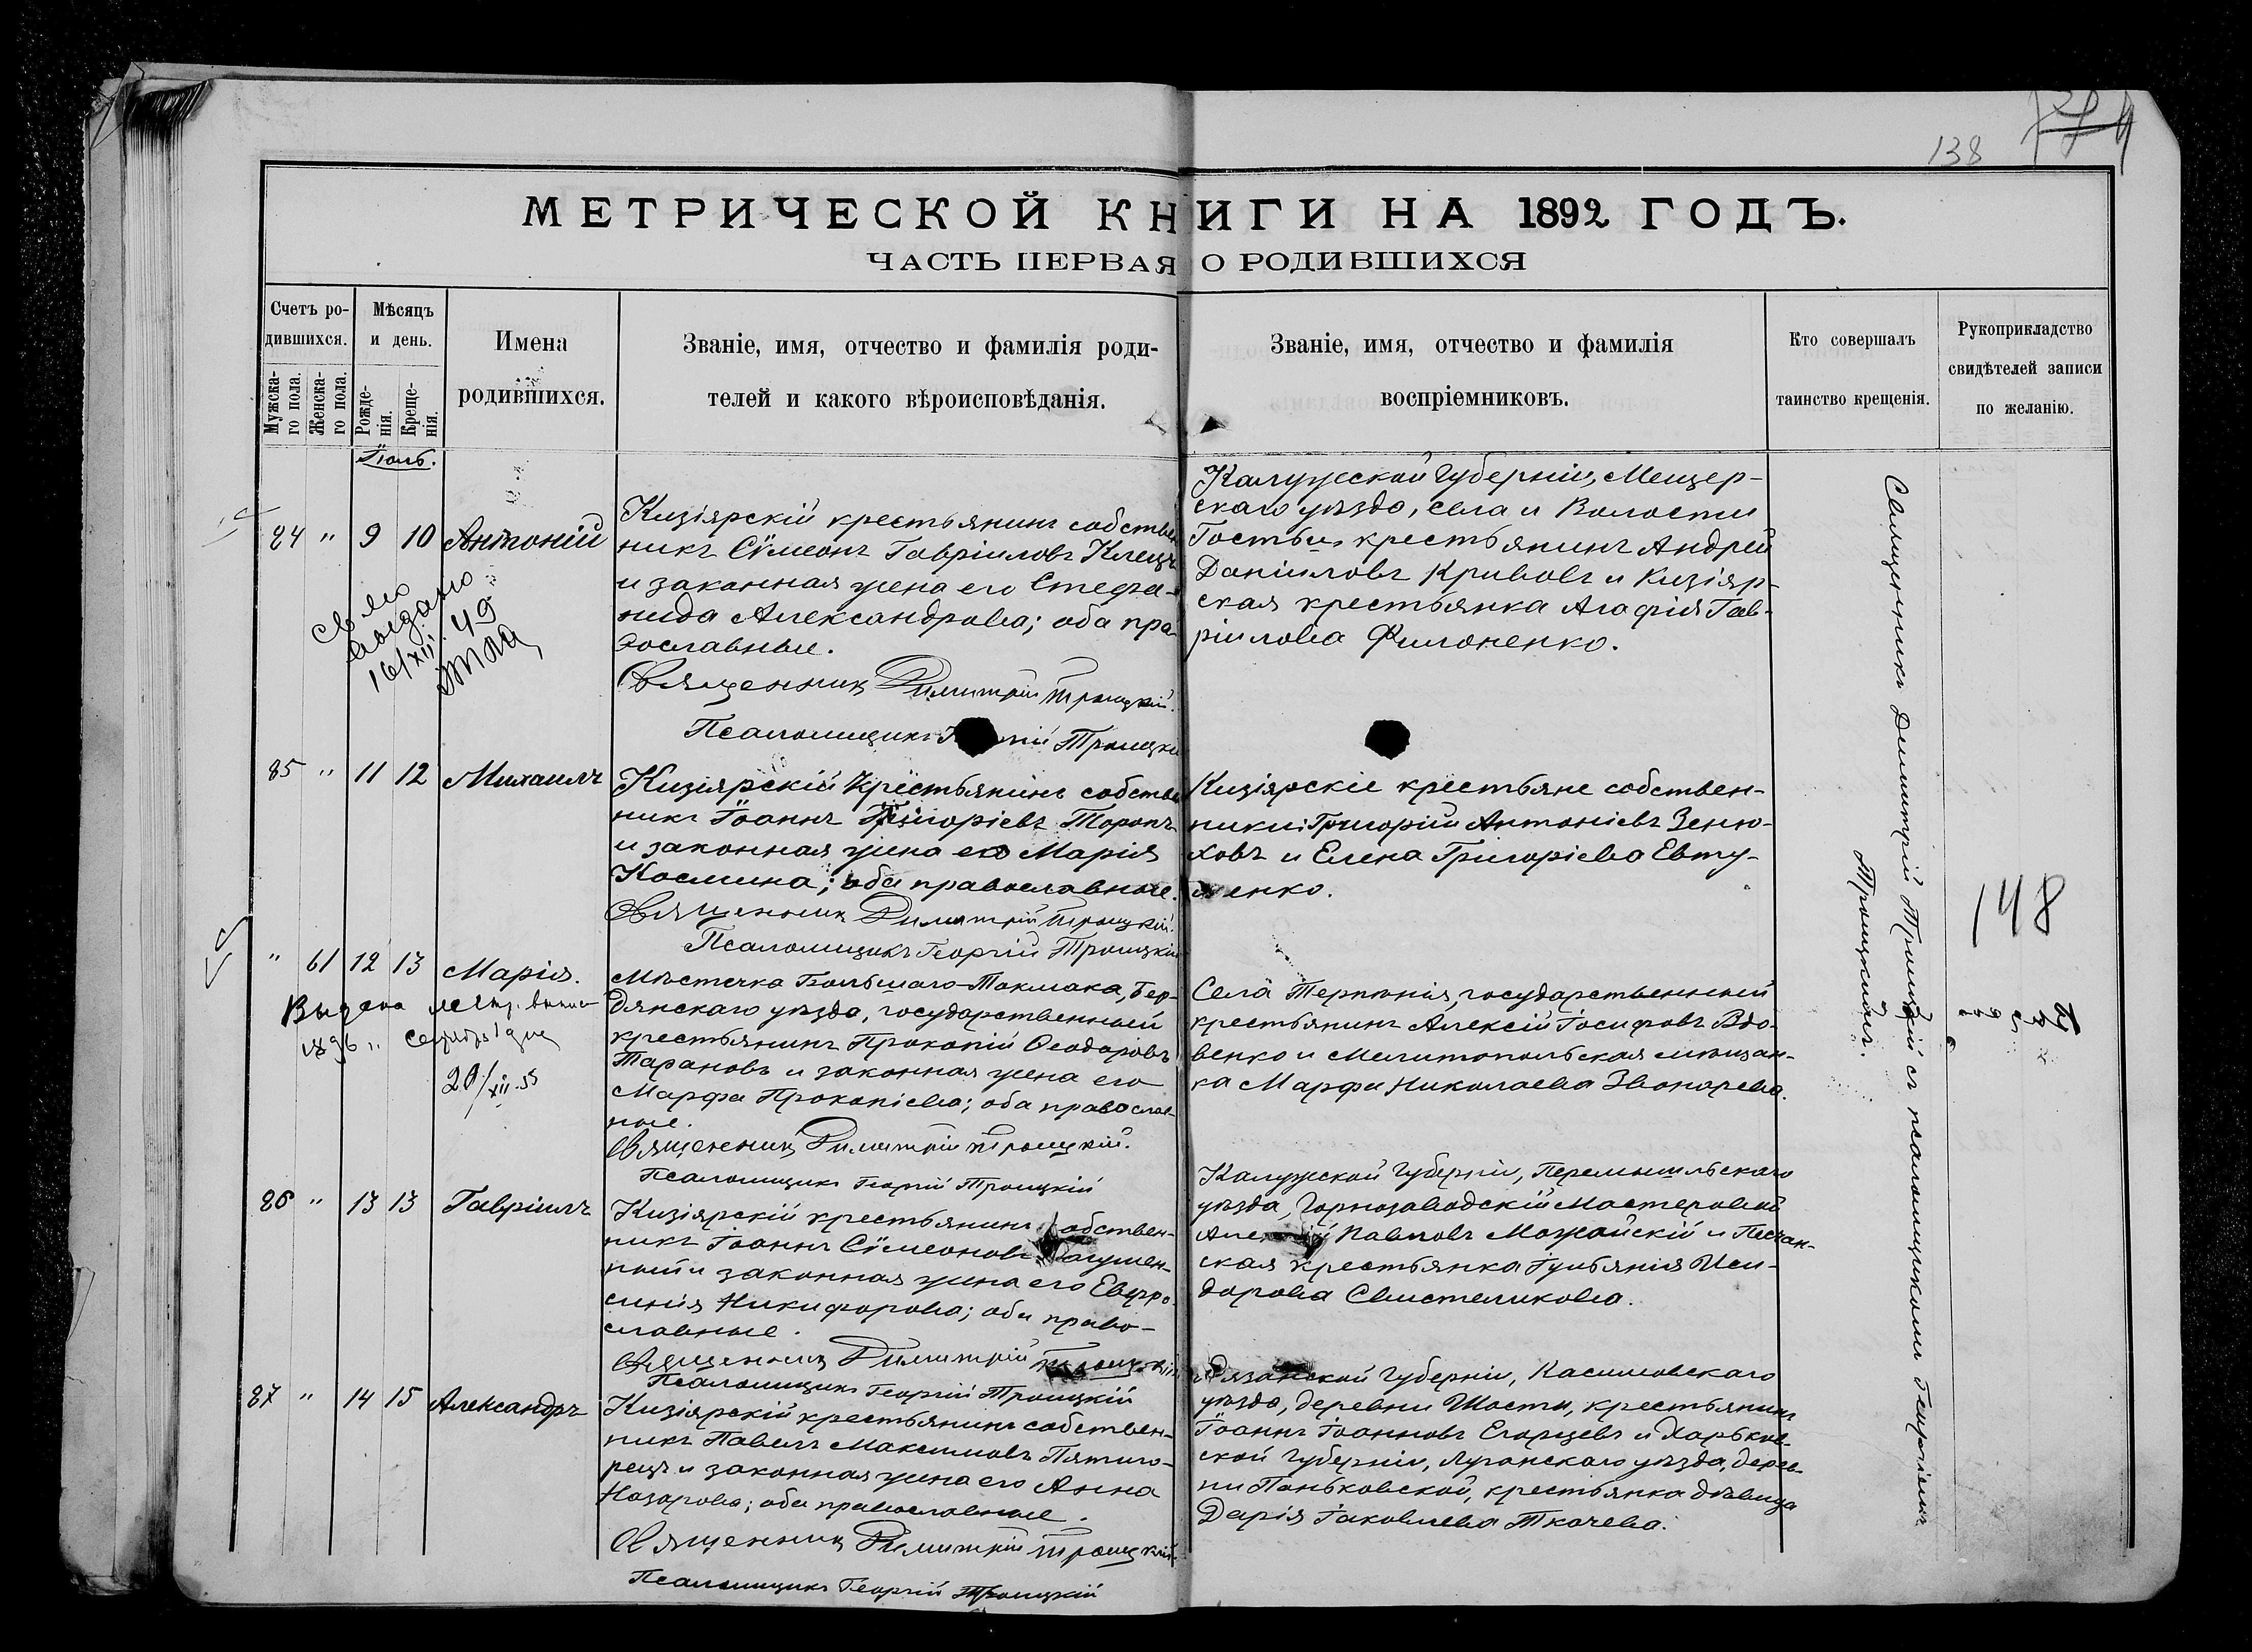 138
МЕТРИЧЕСКОЙ КНИГИ НА 1892 ГОДЪ.
ЧАСТЬ ПЕРВАЯ О РОДИВШИХСЯ
Счетъ ро-
дившихся.
Мужска-
го пола.
Женска-
го пола.
Мѣсяцъ
и день.
Рожде-
нія.
Креще-
нія.
Имена
родившихся.
Званіе, имя, отчество и фамилія роди-
телей и какого вѣроисповѣданія.
Званіе, имя, отчество и фамилія
воспріемниковъ.
Кто совершалъ
таинство крещенія.
Рукоприкладство
свидѣтелей записи
по желанію.
Іюль.
84 " 9 10 Антоній
выдано
16/XII 49
Кизіярскій крестьянинъ собствен
никъ Сѵмеонъ Гавріиловъ Клецъ
и законная жена его Стефа-
нида Александрова; оба пра-
вославные.
Священникъ Димитрій Троицкій.
Псаломщикъ Троицкій
Калужской Губерніи, Мещер-
скаго уѣзда, села и Волости
крестьянинъ Андрей
Даніиловъ Кривовъ и Кизіяр-
ская крестьянка Агафія Гав-
ріилова Филоненко.
85 " 11 12 Михаилъ
Кизіярскій крестьянинъ собствен
никъ Іоаннъ Григоріевъ Торопъ
и законная жена его Марія
Космина; оба православные.
Священникъ Димитрій Троицкій.
Псаломщикъ Георгій Троицкій
Кизіярскіе крестьяне собствен-
ники: Григорій Антоніевъ Зеню-
ховъ и Елена Григоріева Евту-
шенко.
" 61 12 13 Марія.
Выдана метр. выпис
1896 Сентября 1 дня
20/XII.55
Мѣстечка Большаго-Токмака, Бер-
дянскаго уѣзда, государственный
крестьянинъ Прокопій Ѳеодоровъ
Тарановъ и законная жена его
Марфа Прокопіева; оба православ-
ные.
Священникъ Димитрій Троицкій.
Псаломщикъ Георгій Троицкій
Села Терпѣнія, государственный
крестьянинъ Алексій Іосифовъ Вдо-
венко и Мелитопольская мѣщан-
ка Марфа Николаева Звонарева.
86 " 13 13 Гавріилъ
Кизіярскій крестьянинъ собствен-
никъ Іоаннъ Сѵмеоновъ
и законная жена его Евфро-
синія Никифорова; оба право-
славные.
Священникъ Димитрій Троицкій
Псаломщикъ Георгій Троицкій
Калужской Губерніи, Перемышльскаго
уѣзда, Горнозаводскій Мастеровой
Павловъ Можайскій и Песчан-
ская крестьянка Іуліанія Иси-
дорова Свистеликова.
87 " 14 15 Александръ
Кизіярскій крестьянинъ собствен-
никъ Павелъ Максимовъ Пятиго-
рецъ и законная жена его Анна
Назарова; оба православные.
Священникъ Димитрій Троицкій.
Псаломщикъ Георгій Троицкій
Рязанской Губерніи, Касимовскаго
уѣзда, деревни Шости, крестьянинъ
Іоаннъ Іоанновъ Егорцевъ и Харьков-
ской Губерніи, Луганскаго уѣзда, дерев-
ни Паньковской, крестьянка дѣвица
Дарія Іаковлева Ткачева.
Священникъ Димитрій Троицкій съ псаломщикомъ Георгіемъ
Троицкимъ.
148